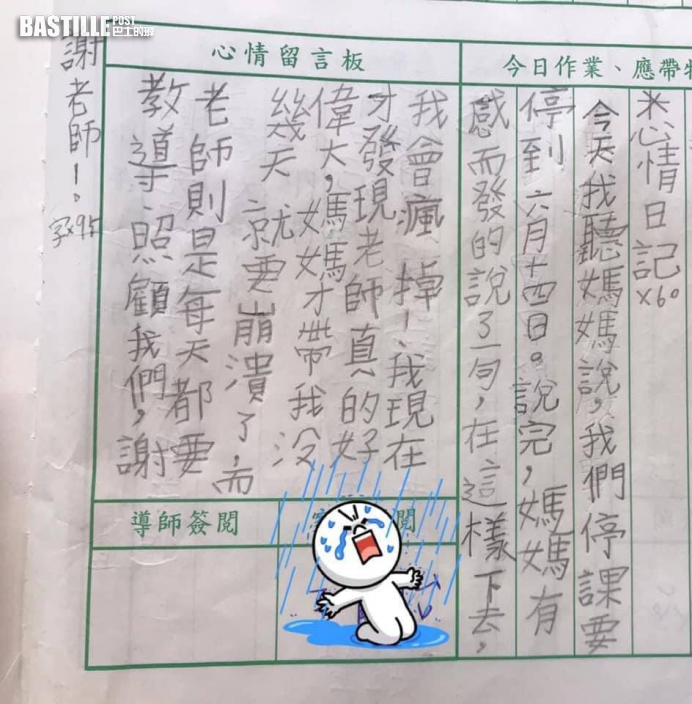 BASTILLE POST
巴士的報
今日作業、應帶物
※心情日記
x60
今天我聽媽媽說，我們停課要
停到六月十四日。說完，媽媽有
感而發的說了一句，在這樣下去，
心情留言板
我會瘋掉！、我現在
才發現老師真的好
偉大，媽媽才帶我沒
幾天就要崩潰了，而
老師則是每天都要
教導、照顧我們，謝
謝老師！。
字x95
導師簽閱
閱